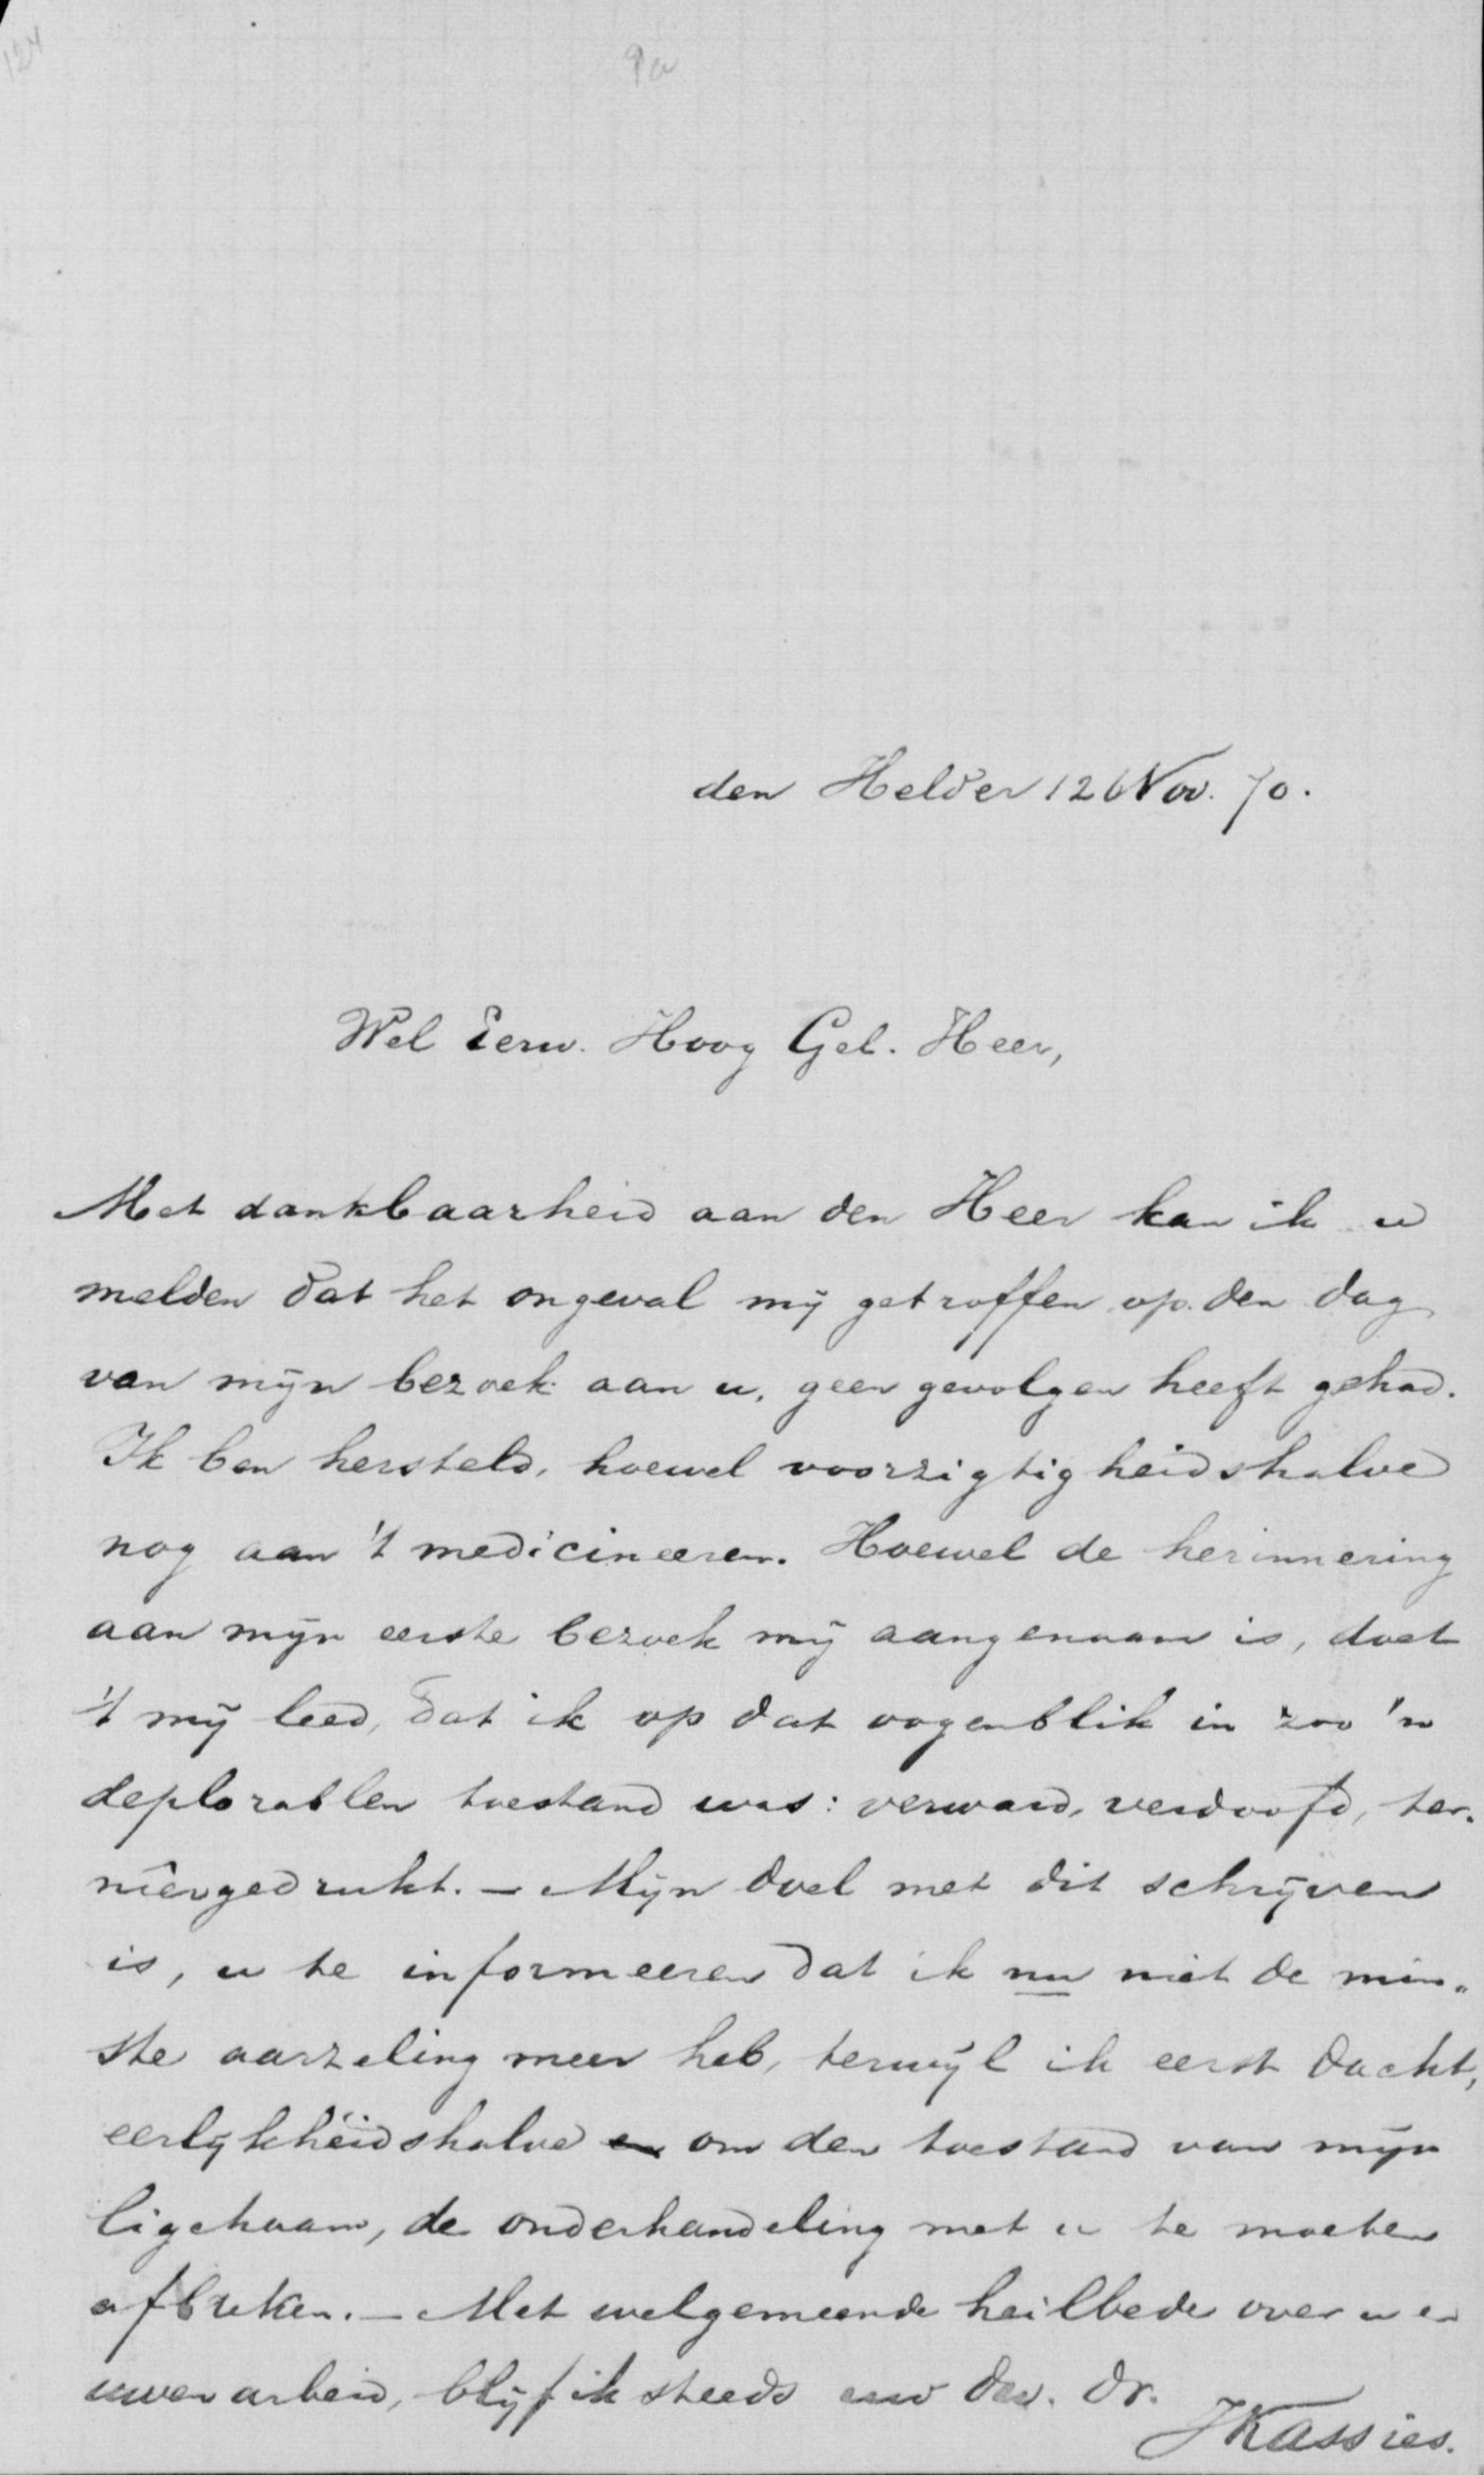 124
9a
den Helder 12 Nov. 70.
Wel Eerw. Hoog Gel. Heer,
Met dankbaarheid aan den Heer kan ik u
melden dat het ongeval mij getroffen op den dag
van mijn bezoek aan u, geen gevolgen heeft gehad.
Ik ben hersteld, hoewel voorzigtigheidshalve
nog aan 't medicineeren. Hoewel de herinnering
aan mijn eerste bezoek mij aangenaam is, doet
't mij leed, dat ik op dat oogenblik in zoo'n
deplorablen toestand was: verward, verdoofd, ter-
niêrgedrukt. — Mijn doel met dit schrijven
is, u te informeeren dat ik nu niet de min-
ste aarzeling meer heb, terwijl ik eerst dacht,
eerlijkheidshalve om den toestand van mijn
ligchaam, de onderhandeling met u te moeten
afbreken. — Met welgemeende heilbede over u en
uwen arbeid, blijf ik steeds uw dw. dr.
JKassies.